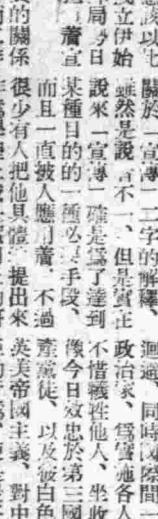 立伊始
的關係
關於「宣傳」二字的解釋、
雖然是說 不一、但是實在
說來「宣傳」確是爲了達到
某種目的的一種必要手段、
而且一直被人應用着、不過
很少有人把他具體 提出來
迴避 同時國際間
政治家、爲實施各人
不惜犧牲他人、坐收
像今日效忠於第三國
產黨徒、以及被白色
英美帝國主義、對中